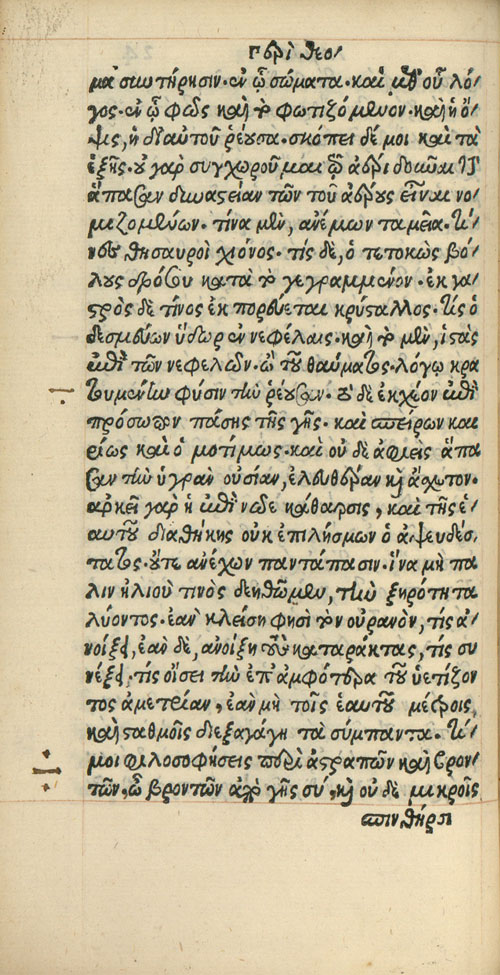 περὶ θεο/
μα συντήρησιν· ἐν ᾧ σώματα· καὶ μεθ' οὗ λό/
γος· ἐν ᾧ φῶς καὶ τὸ φωτιζόμενον· καὶ ἡ ὄ/
ψις, ἡ δι αὐτοῦ ῥέουσα· σκόπει δέ μοι καὶ τὰ
ἑξῆς· οὐ γὰρ συγχωροῦμαι τῷ ἀέρι δοῦναι τὴν
ἅπασαν δυναστείαν τῶν τοῦ ἀέρος εἶναι νο/
μιζομένων· τίνα μὲν, ἀνέμων ταμεῖα· τί/
νες θησαυροὶ χιόνος· τίς δὲ, ὁ τετοκὼς βό/
λους δρόσου κατὰ τὸ γεγραμμένον· ἐκ γα/
στρὸς δὲ τίνος ἐκ πορεύεται κρύσταλλος· τίς ὁ
δεσμεύων ὕδωρ ἐν νεφέλαις· καὶ τὸ μὲν, ἱστὰς
ἐπὶ τῶν νεφελῶν· ὢ τοῦ θαύματος· λόγῳ κρα
τουμένην φύσιν τὴν ῥέουσαν· τὸ δὲ ἐκχέον ἐπὶ
πρόσωπον πάσης τῆς γῆς· καὶ σπείρων και
ρίως καὶ ὁμοτίμως· καὶ οὐ δὲ ἀφιεὶς ἅπα
σαν τὴν ὑγρὰν οὐσίαν, ἐλευθέραν καὶ ἄσχετον·
ἀρκεῖ γὰρ ἡ ἐπὶ νῶε κάθαρσις, καὶ τῆς ἑ/
αυτοῦ διαθήκης οὐκ ἐπιλήσμων ὁ ἀψευδέσ/
τατος· οὔτε ἀνέχων παντάπασιν· ἵνα μὴ πά
λιν ἡλιού τινὸς δεηθῶμεν, τὴν ξηρότητα
λύοντος· ἐὰν κλείσῃ φησὶ τὸν οὐρανὸν, τίς ἀ/
νοίξει, ἐὰν δὲ, ἀνοίξῃ τοὺς καταράκτας, τίς συ
νέξει, τίς οἴσει τὴν ἐπ' ἀμφότερα τοῦ ὑετίζον
τος ἀμετρίαν, ἐὰν μὴ τοῖς ἑαυτοῦ μέτροις,
καὶ σταθμοῖς διεξαγάγῃ τὰ σύμπαντα· τί/
μοι φιλοσοφήσεις περὶ ἀστραπῶν καὶ βρον/
τῶν, ὦ βροντῶν ἀπὸ γῆς σὺ, καὶ οὐ δὲ μικροῖς
σπινθῆρσι